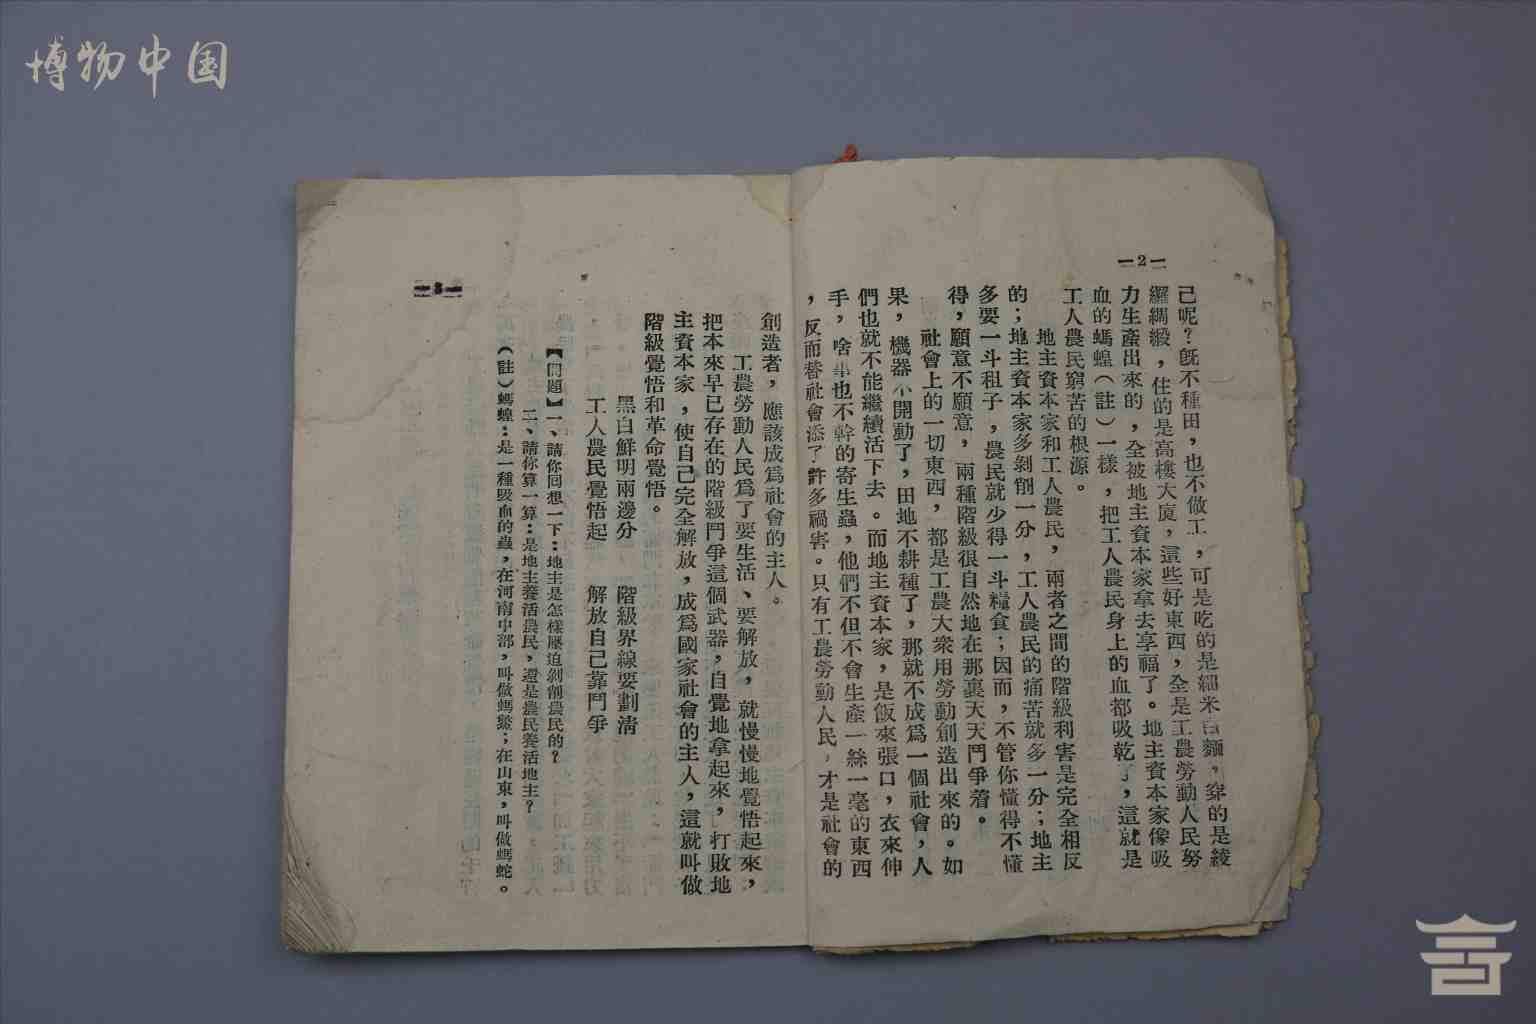 博物中国
—2—
己呢？旣不種田，也不做工，可是吃的是細米白麵，穿的是綾
羅綢緞，住的是高樓大廈，這些好東西，全是工農勞動人民努
力生產出來的，全被地主資本家拿去享福了。地主資本家像吸
血的螞蝗（註）一樣，把工人農民身上的血都吸乾了，這就是
工人農民窮苦的根源。
地主資本家和工人農民，兩者之間的階級利害是完全相反
的；地主資本家多剝削一分，工人農民的痛苦就多一分；地主
多要一斗租子，農民就少得一斗糧食；因而，不管你懂得不懂
得，願意不願意，兩種階級很自然地在那裏天天鬥爭着。
社會上的一切東西，都是工農大衆用勞動創造出來的。如
果，機器不開動了，田地不耕種了，那就不成爲一個社會，人
們也就不能繼續活下去。而地主資本家，是飯來張口，衣來伸
手，啥事也不幹的寄生蟲，他們不但不會生產一絲一毫的東西
，反而替社會添了許多禍害。只有工農勞動人民，才是社會的
—3—
創造者，應該成爲社會的主人。
工農勞動人民爲了要生活、要解放，就慢慢地覺悟起來，
把本來早已存在的階級鬥爭這個武器，自覺地拿起來，打敗地
主資本家，使自己完全解放，成爲國家社會的主人，這就叫做
階級覺悟和革命覺悟。
黑白鮮明兩邊分　階級界線要劃清
工人農民覺悟起　解放自己靠鬥爭
【問題】一、請你回想一下：地主是怎樣壓迫剝削農民的？
二、請你算一算：是地主養活農民，還是農民養活地主？
（註）螞蝗：是一種吸血的蟲，在河南中部，叫做螞鱉；在山東，叫做螞蛇。